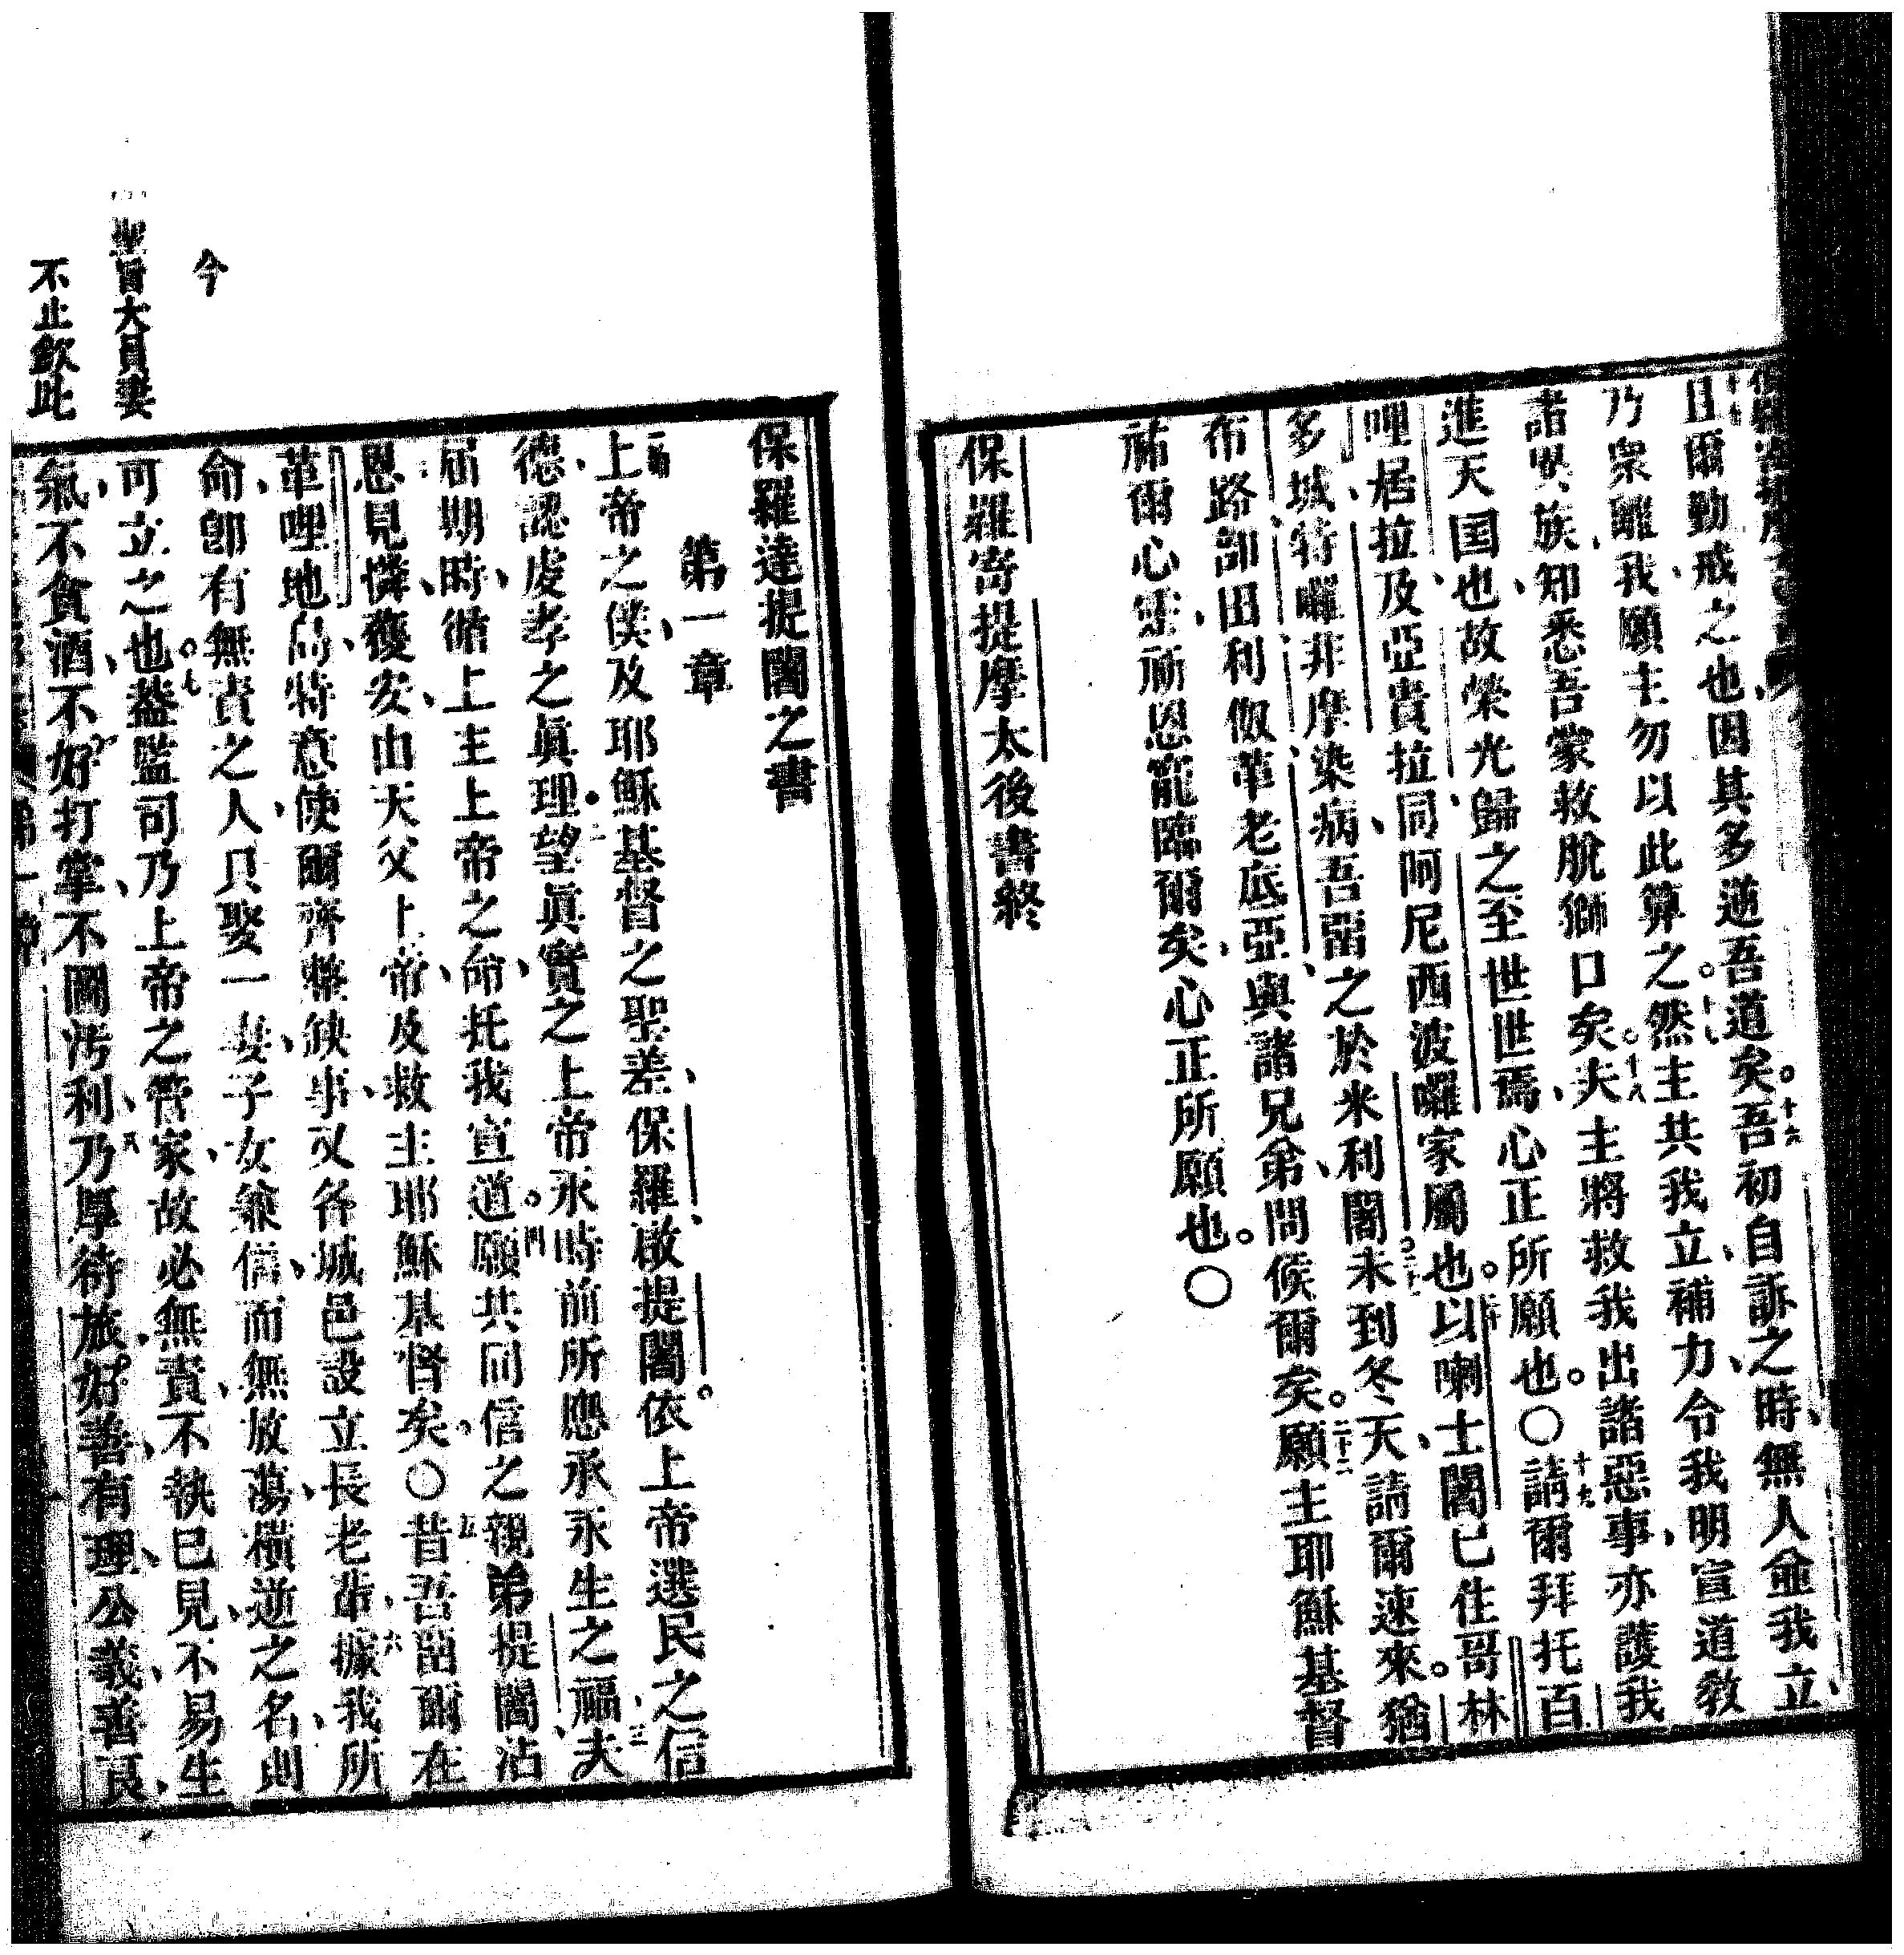 且爾勤戒之也因其多逆吾道矣吾初自訴之時無人並我立
乃衆離我願主勿以此算之然主共我立補力令我明宣道教
諸異族知悉吾蒙救脫獅口矣夫主將救我出諸惡事亦護我
進天国也故榮光歸之至世世焉心正所願也〇請爾拜托百
哩居拉及亞貴拉同阿尼西波囉家屬也以喇士闍已住哥林
多城特囉非摩染病吾留之於米利闍未到冬天請爾速來猶
布路部田利伮革老底亞與諸兄弟問候爾矣願主耶穌基督
祐爾心靈所恩寵臨爾矣心正所願也〇
保羅寄提摩太後書終
保羅達提闍之書
第一章
上帝之僕及耶穌基督之聖差保羅啟提闍依上帝選民之信
德認虔孝之眞理望眞實之上帝永時前所應承永生之福夫
屆期時循上主上帝之命托我宣道願共同信之親弟提闍沾
恩見憐獲安由天父上帝及救主耶穌基督矣〇昔吾留爾在
革哩地島特意使爾齊整缺事又各城邑設立長老輩據我所
命卽有無責之人只娶一妻子女兼信而無放蕩橫逆之名則
可立之也蓋監司乃上帝之管家故必無責不執已見不易生
氣不貪酒不好打掌不圖汚利乃厚待旅好善有理公義善良
今
聖旨大員妻
不止欽此